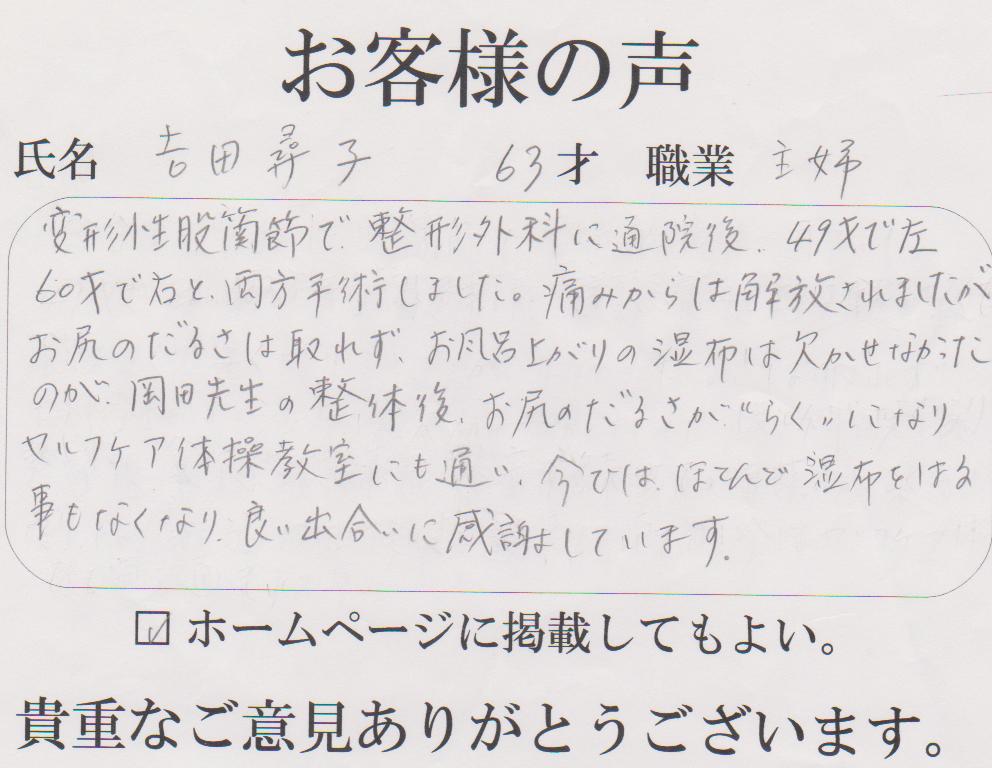 お客様の声
氏名 吉田尋子 63才 職業 主婦
変形性股関節で、整形外科に通院後、49才で左
60才で右と、両方手術しました。痛みからは解放されましたが
お尻のだるさは取れず、お風呂上がりの湿布は欠かせなかった
のが、岡田先生の整体後、お尻のだるさが“らく”になり
セルフケア体操教室にも通い、今では、ほとんど湿布をはる
事もなくなり、良い出合いに感謝しています。
☑ ホームページに掲載してもよい。
貴重なご意見ありがとうございます。